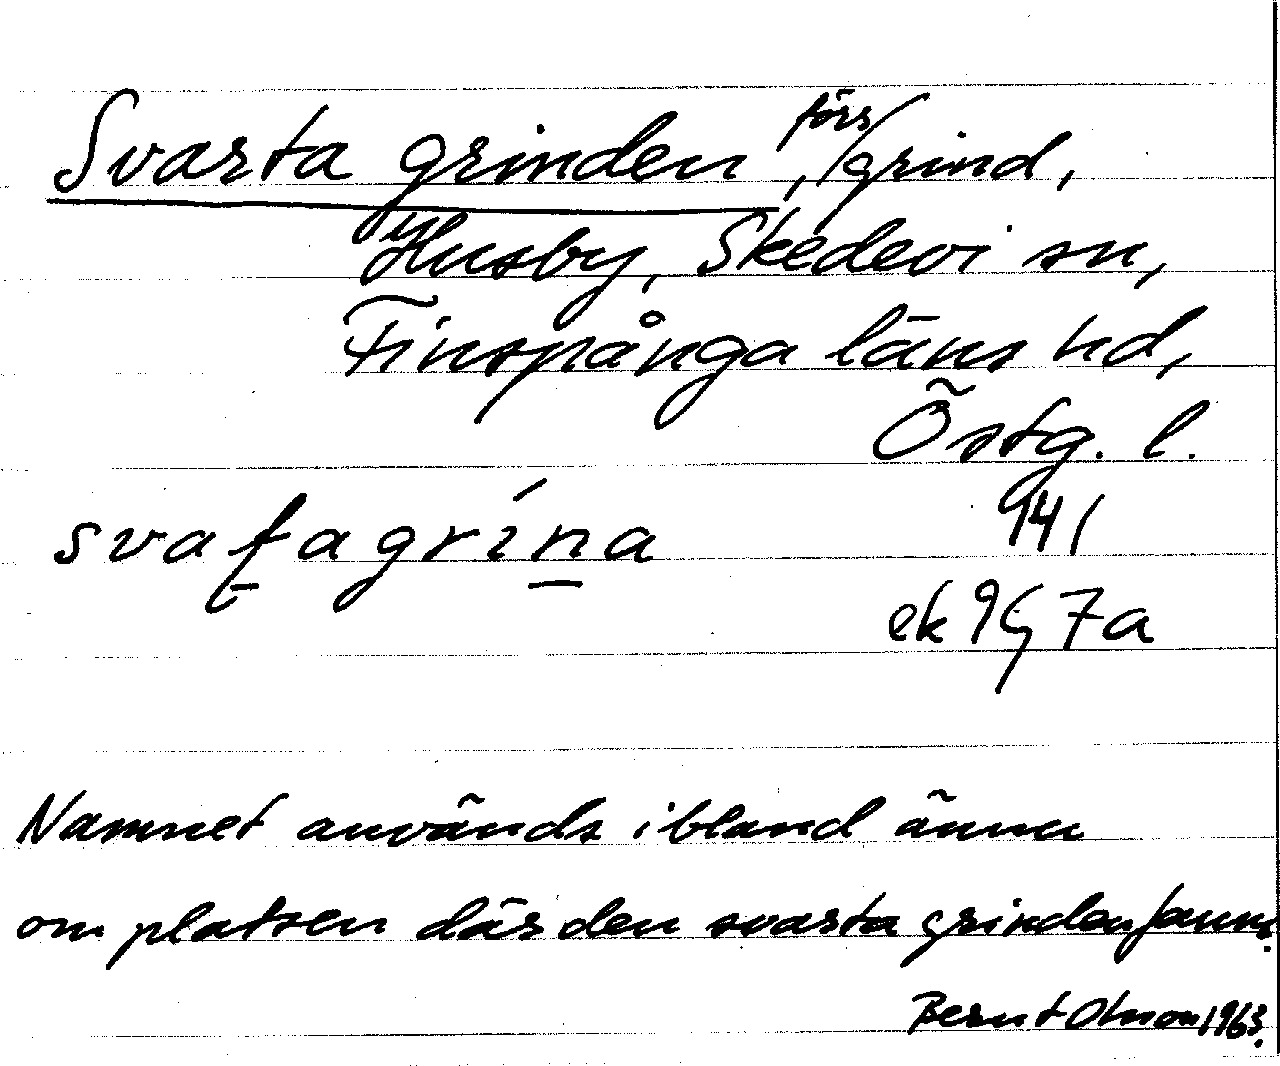 Svarta grinden, förs/grind,
yHusby, Skedevi sn,
Finspånga läns hd,
Östg. l.
svaʈagrína 941
ek 9G7a
Namnet används ibland ännu
om platsen där den svarta grinden fanns.
Bernt Olsson 1963.